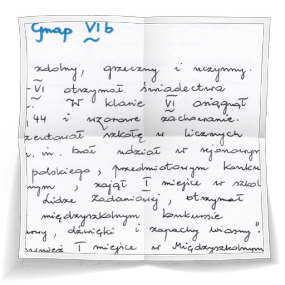 Gnap VI b
zdolny, grzeczny i uczynny.
-VI otrzymał świadectwa
W klasie VI osiągnął
44 i wzorowe zachowanie.
zentował szkołę w licznych
m. in. brał udział w rejonowym
polskiego, przedmiotowym konku
nym, zajął I miejsce w szkol
Lidze Zadaniowej, otrzymał
międzyszkolnym konkursie
wy, dźwięki i zapachy wiosny".
wnież I miejsce w Międzyszkolnym